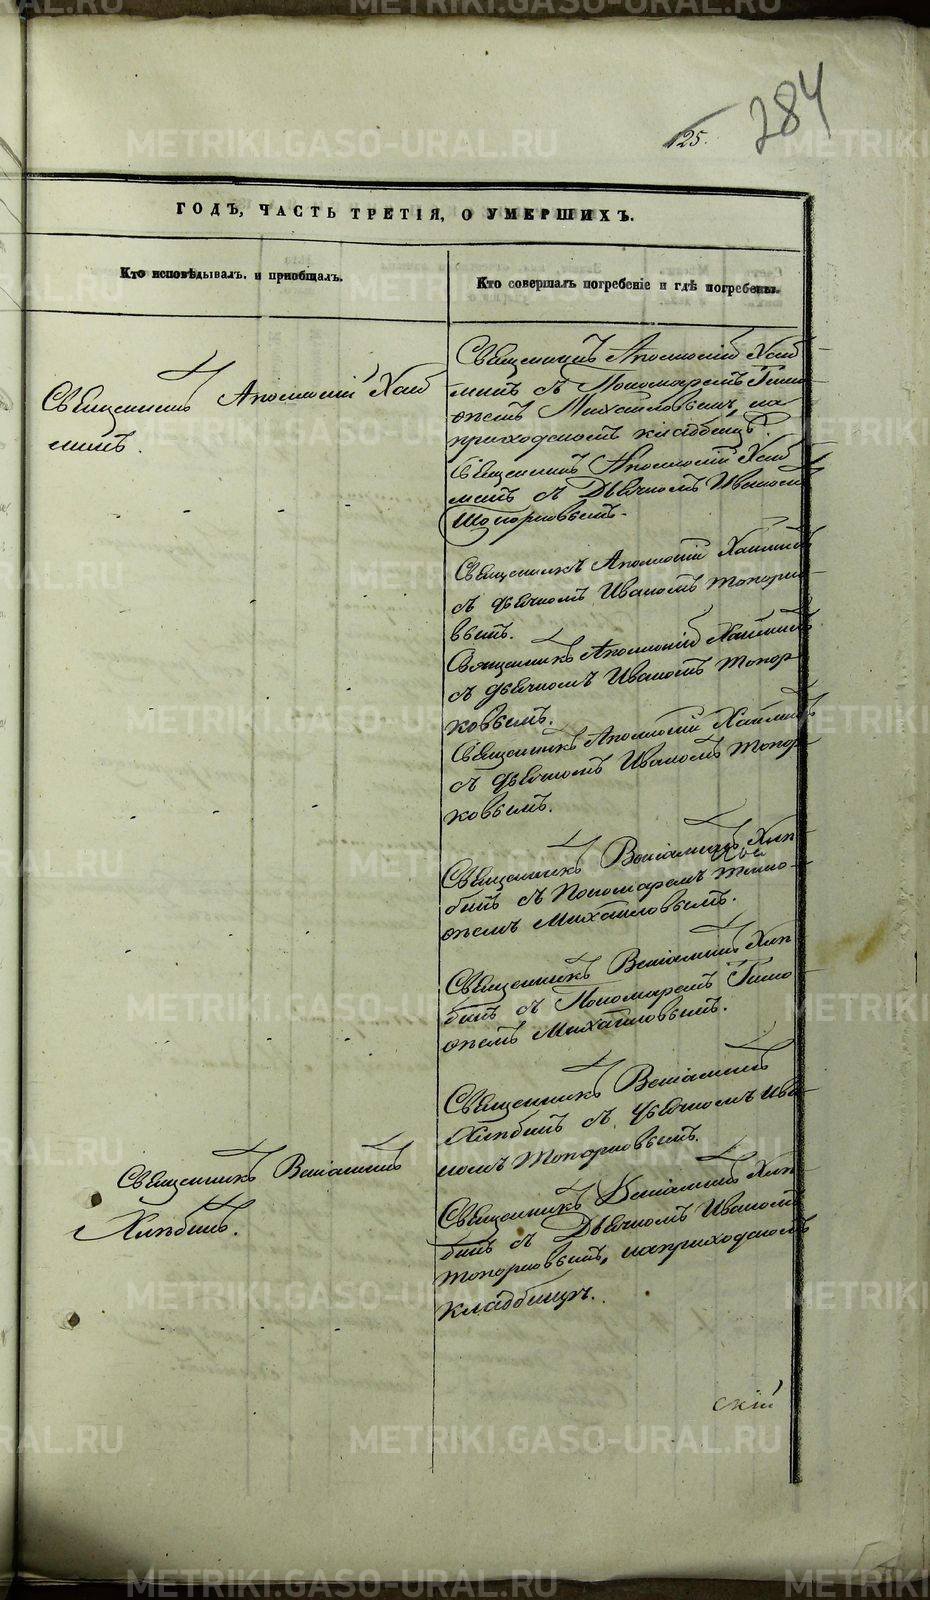 284
125.
ГОДЪ, ЧАСТЬ ТРЕТІЯ, О УМЕРШИХЪ.
Кто исповѣдывалъ и пріобщалъ.
Кто совершалъ погребеніе и гдѣ погребены.
Священникъ Аполлоній Хлы
нинъ.
Священникъ Веніаминъ
Хлѣбинъ.
Священникъ Аполлоній
съ Пономаремъ Тимо
ѳеемъ Михайловымъ, на
приходскомъ кладбищѣ.
Священникъ Аполлоній
съ Дьячкомъ Иваномъ
Топорковымъ.
Священникъ Аполлоній
съ дьячкомъ Иваномъ Топорко
вымъ.
Священникъ Аполлоній
съ дьячкомъ Иваномъ Топор
ковымъ.
Священникъ Аполлоній
съ дьячкомъ Иваномъ Топор
ковымъ.
Священникъ Веніаминъ Хлѣ
бинъ съ Пономаремъ Тимо-
ѳеемъ Михайловымъ.
Священникъ Веніаминъ Хлѣ
бинъ съ Пономаремъ Тимо
ѳеемъ Михайловымъ.
Священникъ Веніаминъ
Хлѣбинъ съ дьячкомъ Ива
номъ Топорковымъ.
Священникъ Веніаминъ Хлѣ
бинъ съ Дьячкомъ Иваномъ
Топорковымъ, на приходскомъ
кладбищѣ.
скій
METRIKI.GASO-URAL.RU